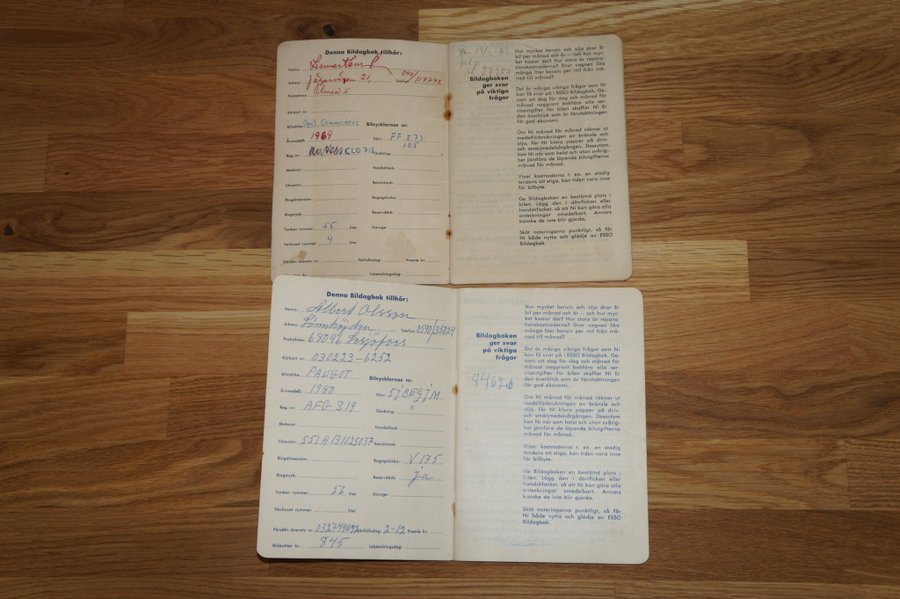 Denna Bildagbok tillhör:
Namn:
Adress: 21, Telefon: 040/119792
Postadress:
Körkort nr:
Bilmärke: Opel Commodore Bilnycklarnas nr:
Årsmodell: 1969 Dörr: FF 573
Reg.-nr: Tändning: 105
Motornr: Handskfack:
Chassinr: Bensintank:
Ringdimension: Bagagelucka:
Ringtryck: Reservdäck:
Tanken rymmer: 55 liter Garage:
Vevhuset rymmer: 4 liter
Försäkr.-brevets nr: Förfallodag: Premie kr:
Inbetalningsdag:
Bildagboken
ger svar
på viktiga
frågor
Hur mycket bensin och olja drar Er
bil per månad och år — och hur myc-
ket kostar det? Hur stora är repara-
tionskostnaderna? Drar vagnen lika
många liter bensin per mil från mån-
ad till månad?
Det är många viktiga frågor som Ni
kan få svar på i ESSO Bildagbok. Ge-
nom att dag för dag och månad för
månad noggrant bokföra alla ser-
viceutgifter för bilen skaffar Ni Er
den överblick som är förutsättningen
för god ekonomi.
Om Ni månad för månad räknar ut
medelförbrukningen av bränsle och
olja, får Ni klara papper på driv-
och smörjmedelsåtgången. Dessutom
kan Ni när som helst och utan svårig-
het jämföra de löpande bilutgifterna
månad för månad.
Visar kostnaderna t. ex. en stadig
tendens att stiga, kan tiden vara inne
för bilbyte.
Ge Bildagboken en bestämd plats i
bilen. Lägg den i dörrfickan eller
handskfacket, så att Ni kan göra alla
anteckningar omedelbart. Annars
kanske de inte blir gjorda.
Sköt noteringarna punktligt, så får
Ni både nytta och glädje av ESSO
Bildagbok.
Denna Bildagbok tillhör:
Namn: Albert Olsson
Adress: Telefon: 0590/35024
Postadress: 68096 Lesjöfors
Körkort nr: 030223-6252
Bilmärke: PAUGOT Bilnycklarnas nr:
Årsmodell: 1980 Dörr:
Reg.-nr: AFG 319 Tändning: "
Motornr: Handskfack:
Chassinr: 551A Bensintank:
Ringdimension: Bagagelucka: V 175
Ringtryck: Reservdäck: Ja
Tanken rymmer: 56 liter Garage:
Vevhuset rymmer: liter
Försäkr.-brevets nr: Förfallodag: 2-12 Premie kr:
Bilskatten kr: 845 Inbetalningsdag:
Bildagboken
ger svar
på viktiga
frågor
Hur mycket bensin och olja drar Er
bil per månad och år — och hur myc-
ket kostar det? Hur stora är repara-
tionskostnaderna? Drar vagnen lika
många liter bensin per mil från mån-
ad till månad?
Det är många viktiga frågor som Ni
kan få svar på i ESSO Bildagbok. Ge-
nom att dag för dag och månad för
månad noggrant bokföra alla ser-
viceutgifter för bilen skaffar Ni Er
den överblick som är förutsättningen
för god ekonomi.
Om Ni månad för månad räknar ut
medelförbrukningen av bränsle och
olja, får Ni klara papper på driv-
och smörjmedelsåtgången. Dessutom
kan Ni när som helst och utan svårig-
het jämföra de löpande bilutgifterna
månad för månad.
Visar kostnaderna t. ex. en stadig
tendens att stiga, kan tiden vara inne
för bilbyte.
Ge Bildagboken en bestämd plats i
bilen. Lägg den i dörrfickan eller
handskfacket, så att Ni kan göra alla
anteckningar omedelbart. Annars
kanske de inte blir gjorda.
Sköt noteringarna punktligt, så får
Ni både nytta och glädje av ESSO
Bildagbok.